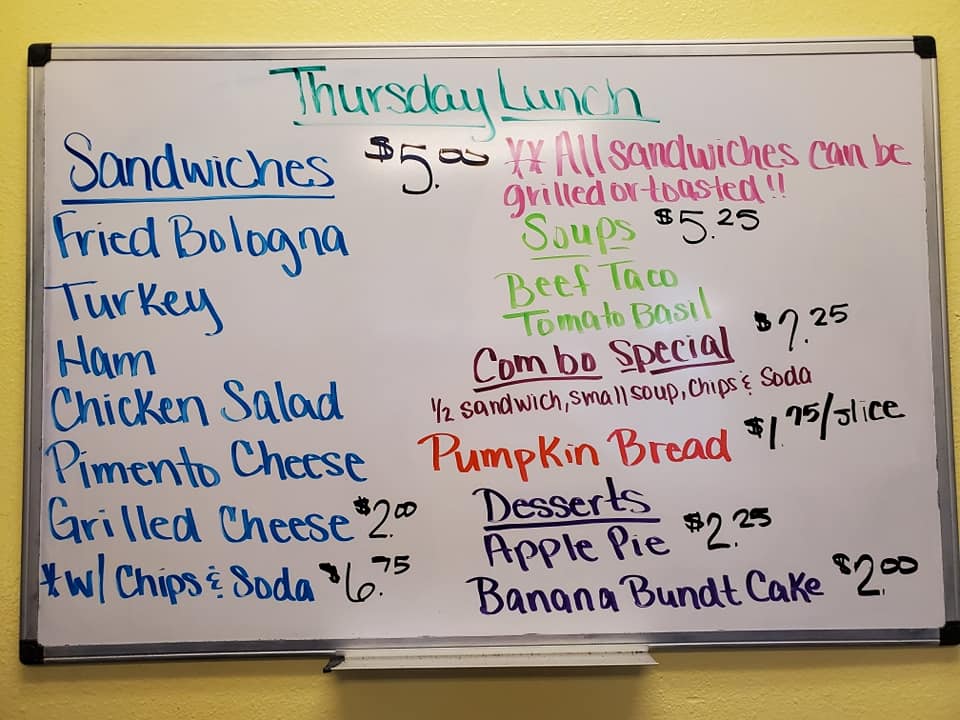 Thursday Lunch
Sandwiches $5.00
Fried Bologna
Turkey
Ham
Chicken Salad
Pimento Cheese
Grilled Cheese $2.00
* W/ Chips & Soda $6.75
** All sandwiches can be
grilled or toasted!!
Soups $5.25
Beef Taco
Tomato Basil
Combo Special $7.25
1/2 sandwich, small soup, chips & Soda
Pumpkin Bread $1.75/slice
Desserts
Apple Pie $2.25
Banana Bundt Cake $2.00